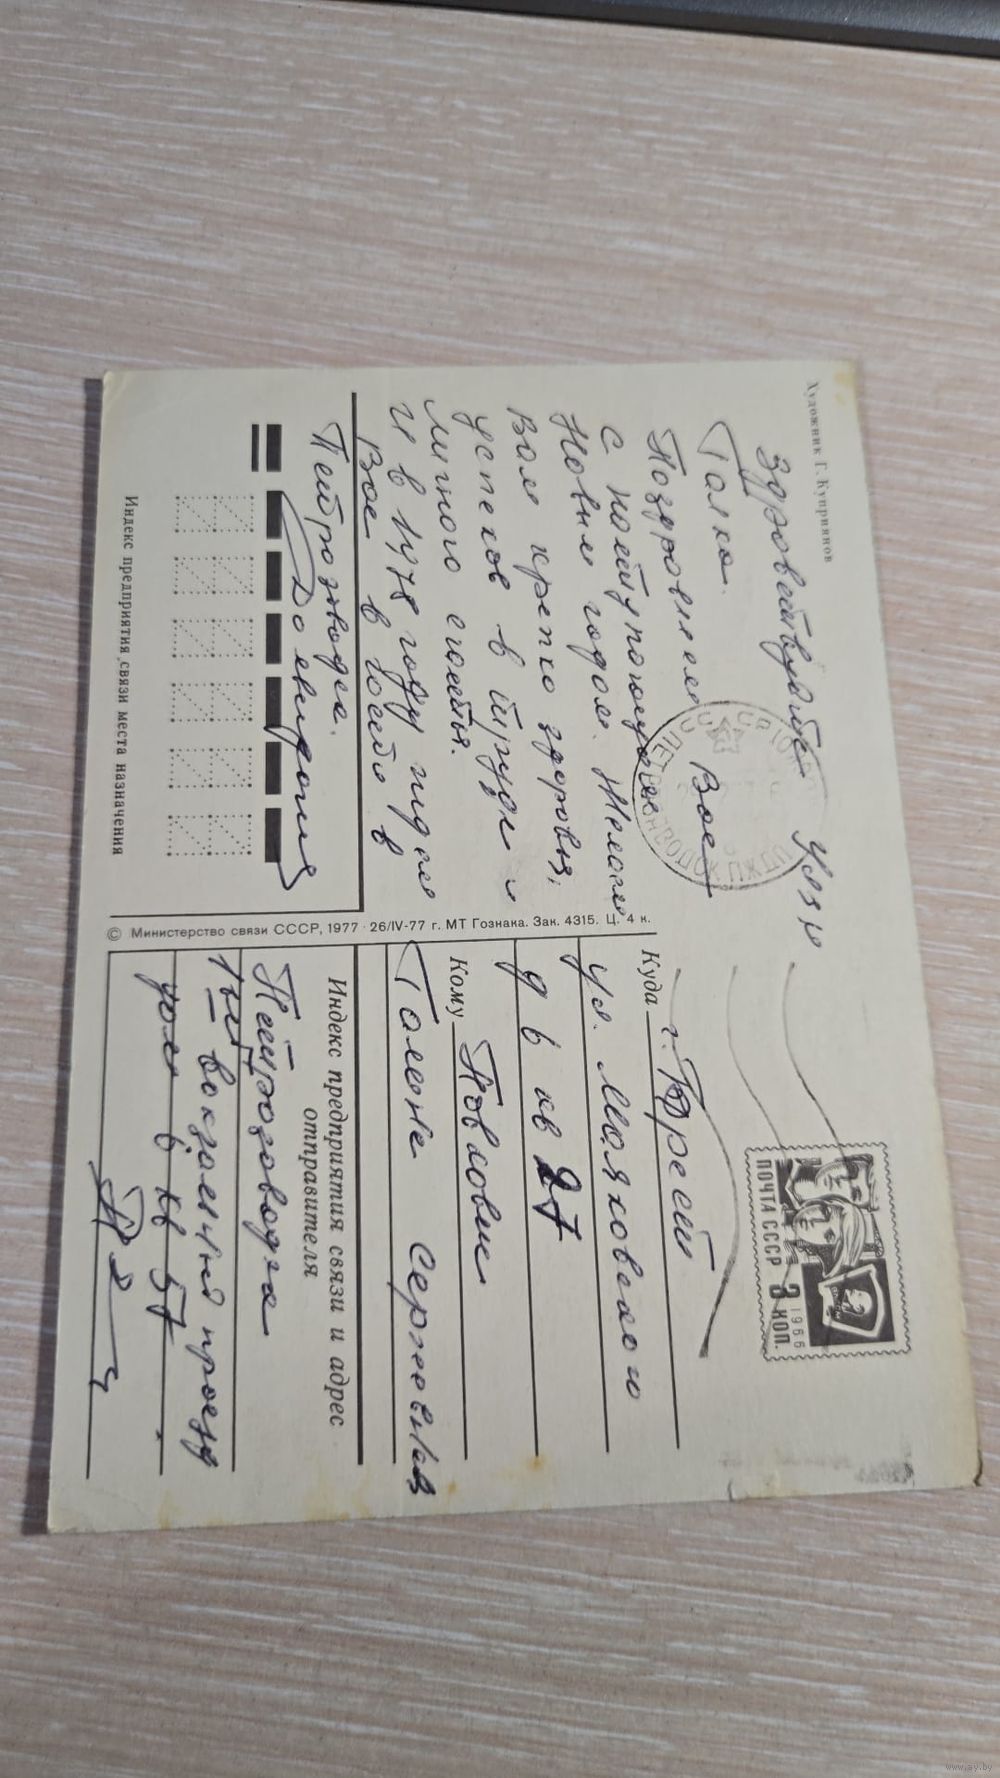 Художник Г. Куприянов
Здравствуйте
Галка.
Поздравляем Вас
с наступающим
Новым годом. Желаем
Вам крепко здоровья,
успехов в труде и
личного счастья.
И в 1978 году ждем
Вас в гости в
Петрозводск.
До свидания
Индекс предприятия связи места назначения
© Министерство связи СССР, 1977 · 26/IV-77 г. МТ Гознака. Зак. 4315. Ц. 4 к.
ПОЧТА СССР
3 КОП.
1966
Куда г. Брест
ул. Мояковского
д 6 кв 27
Кому Павлович
Галене Сергеевна
Индекс предприятия связи и адрес
отправителя
Петрозаводск
вокзальный проезд
дом 6 кв 57
www.ay.by